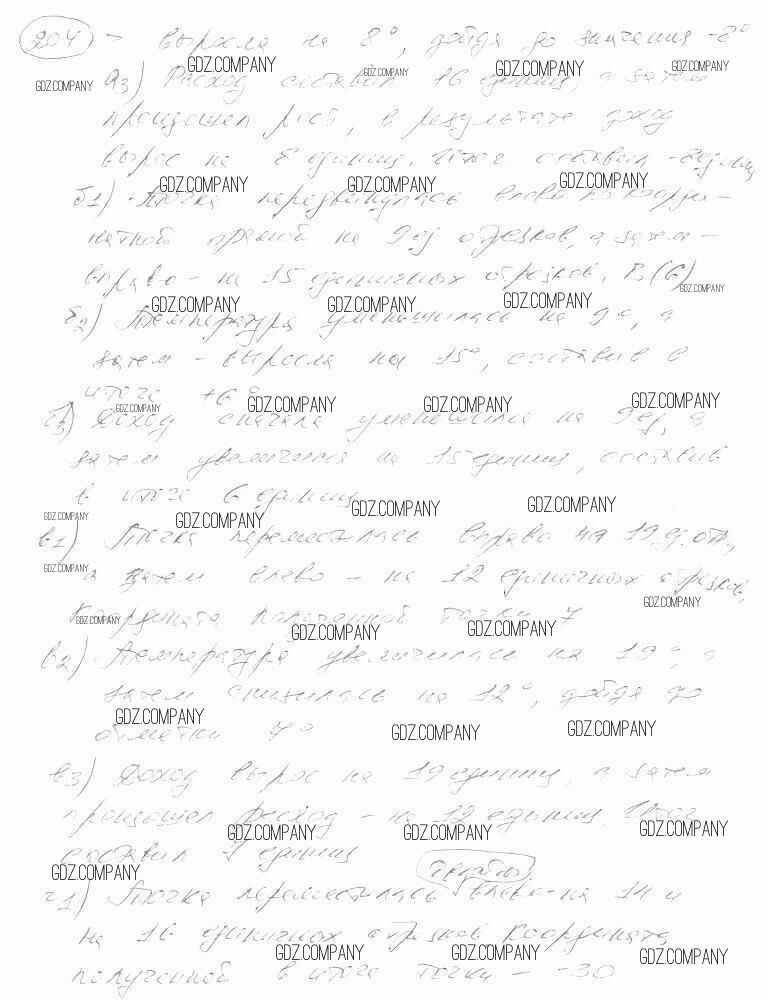 204 → выросла на 8°, дойдя до значения -8°
а3) Расход составил 16 единиц, а затем
произошел рост, в результате доход
вырос на 8 единиц. Итог составил -8 единиц
б1) Точка передвинулась влево по коорди-
натной прямой на 9 ед отрезков, а затем -
вправо - на 15 единичных отрезков. B(6)
б2) Температура уменьшилась на 9°, а
затем - выросла на 15°, составив в
итоге +6°
б3) Доход сначала уменьшился на 9 ед, а
затем увеличился на 15 единиц, составив
в итоге 6 единиц
в1) Точка переместилась вправо на 19 ед. отр.,
а затем влево - на 12 единичных отрезков,
Координата полученной точки 7
в2) Температура увеличилась на 19°, а
затем снизилась на 12°, дойдя до
отметки 7°
в3) Доход вырос на 19 единиц, а затем
произошел расход - на 12 единиц. Итог
составил 7 единиц
г1) Точка переместилась влево - на 14 и
на 16 единичных отрезков Координата
полученной в итоге точки - -30
GDZ.COMPANY